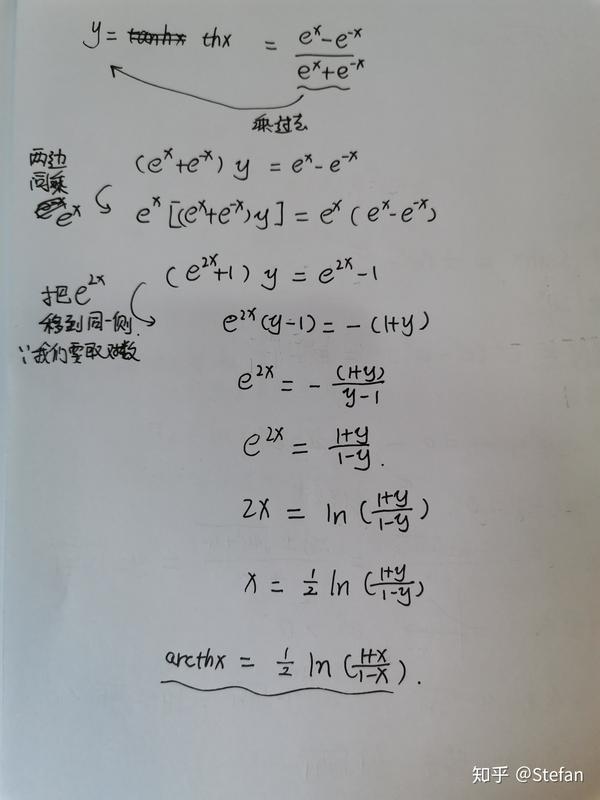 y = tanhx thx = (e^x-e^-x)/(e^x+e^-x)
乘过去
两边
同乘
e^x
(e^x+e^-x) y = e^x-e^-x
e^x [(e^x+e^-x)y] = e^x (e^x-e^-x)
(e^2x+1) y = e^2x-1
把e^2x
移到同一侧.
∵我们要取对数
e^2x (y-1) = -(1+y)
e^2x = - (1+y)/(y-1)
e^2x = (1+y)/(1-y).
2x = ln((1+y)/(1-y))
x = 1/2 ln((1+y)/(1-y))
arcthx = 1/2 ln((1+x)/(1-x)).
知乎 @Stefan